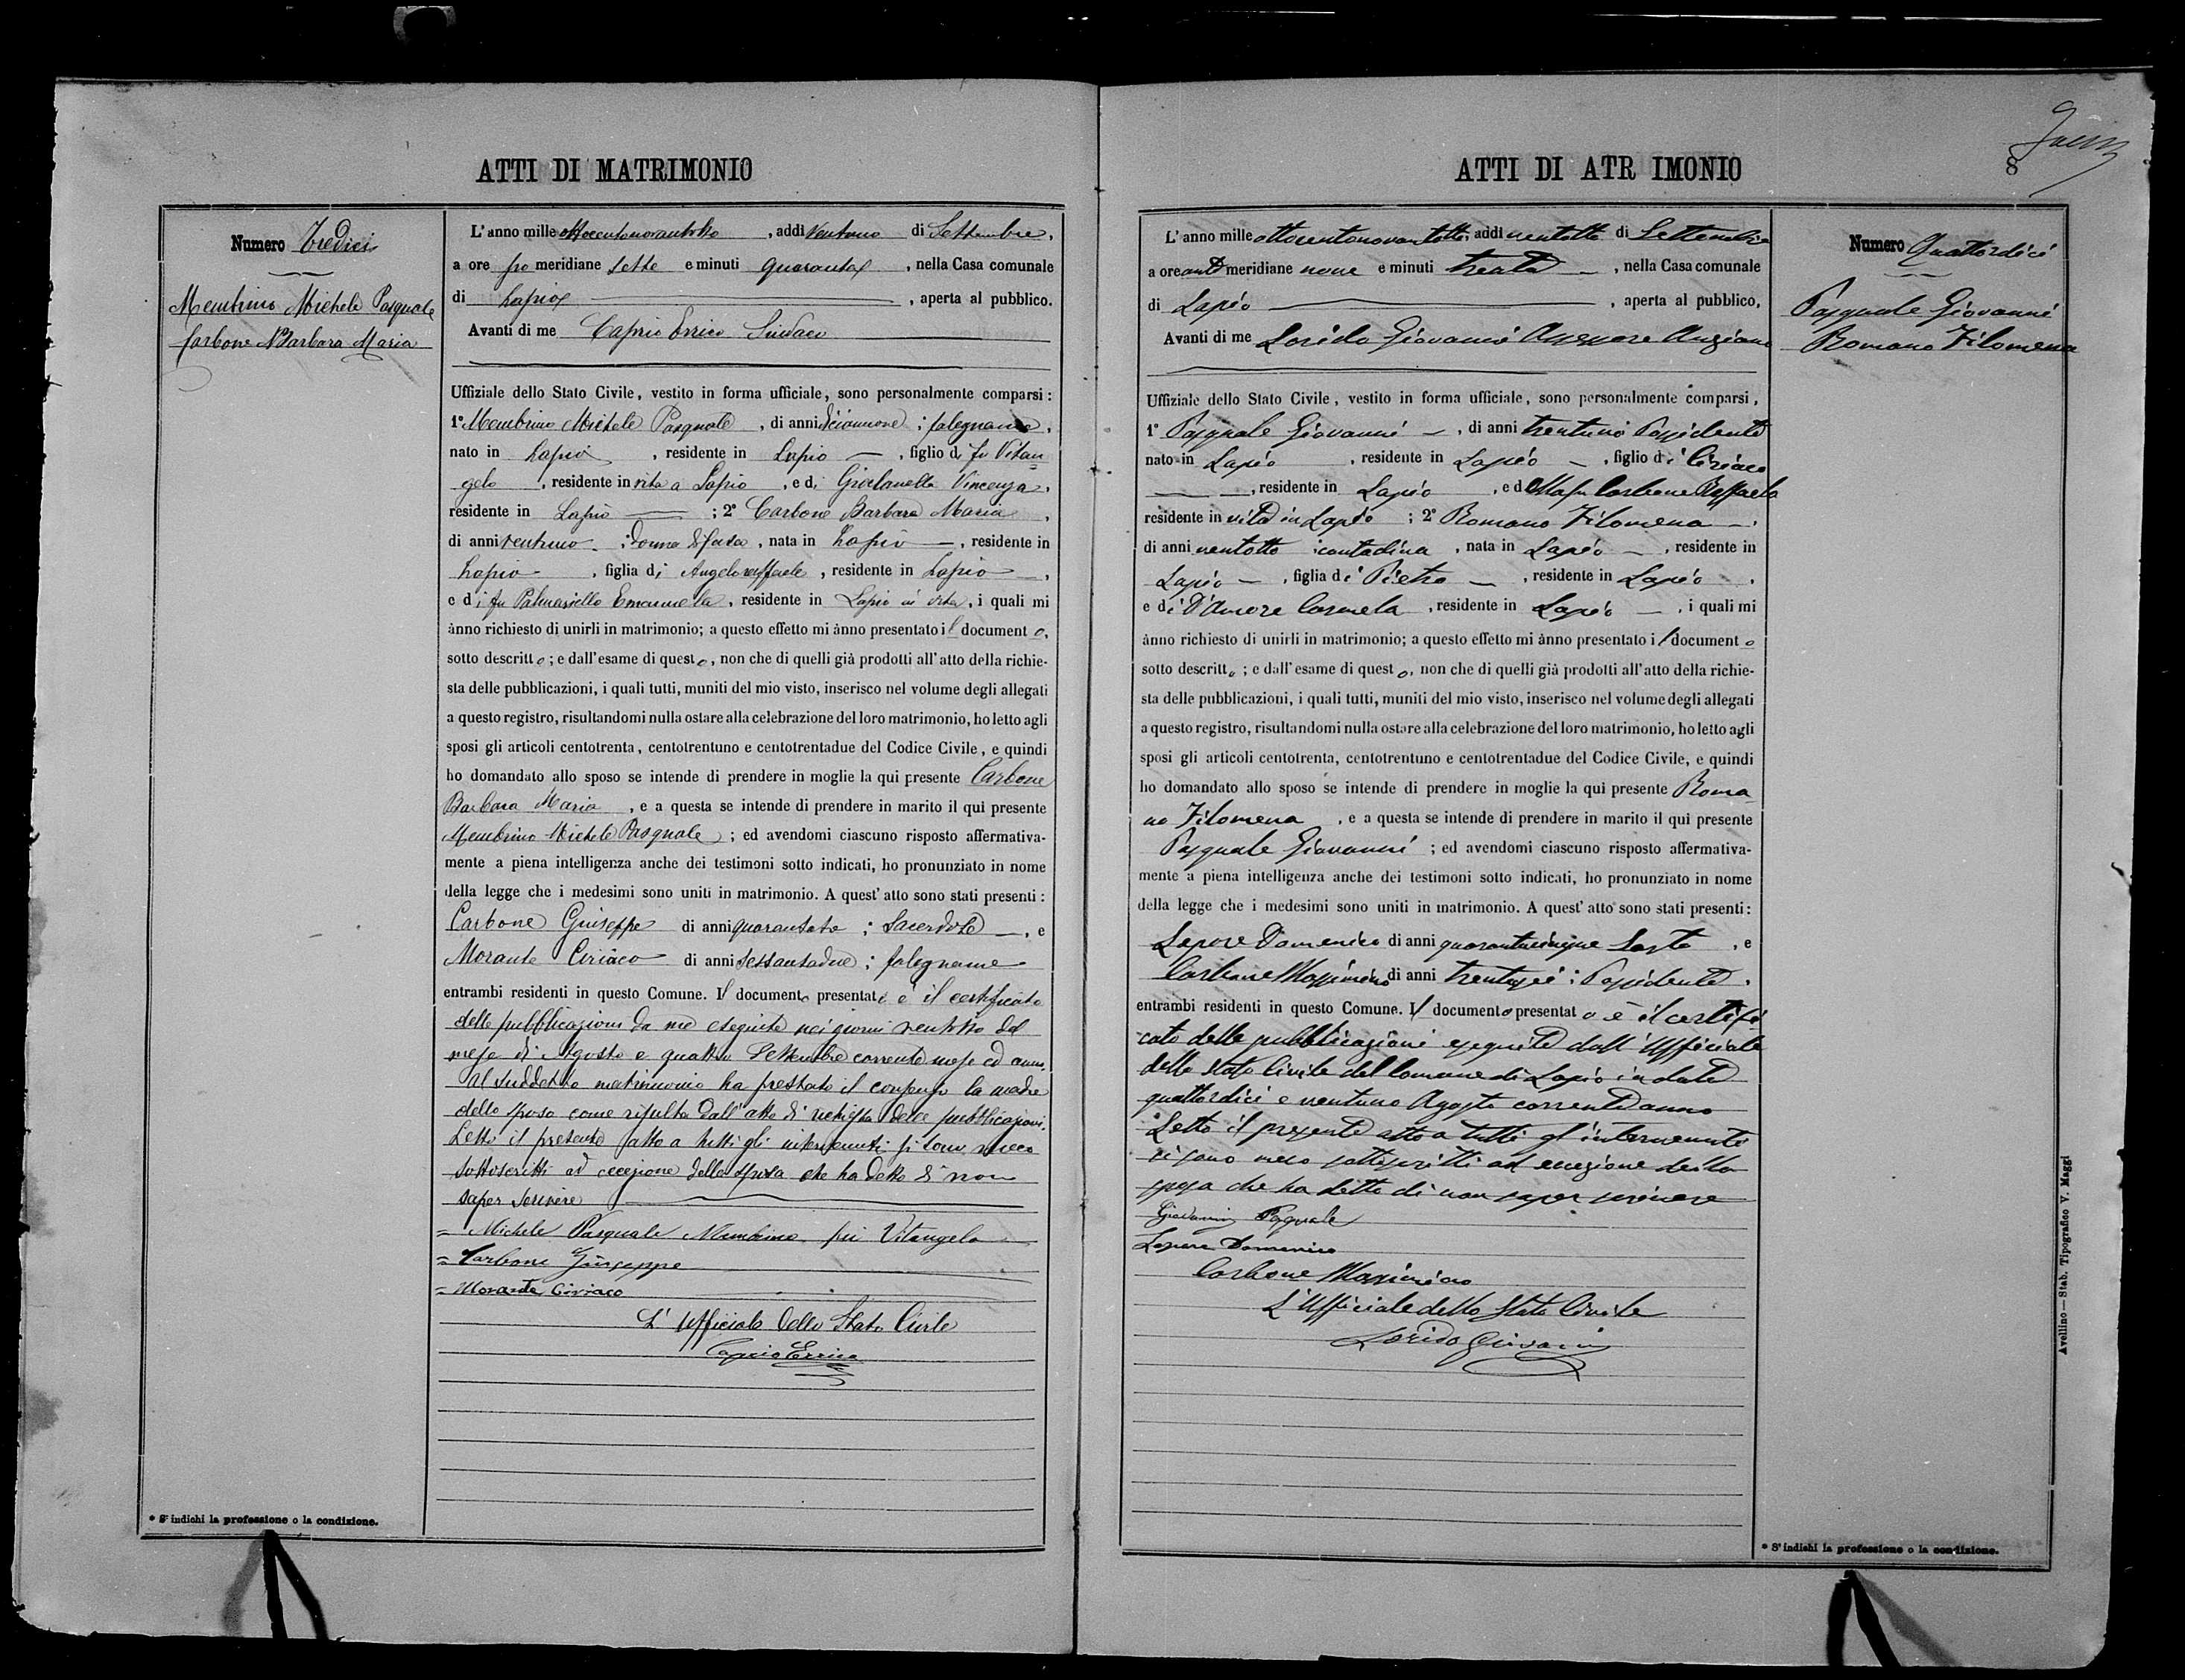 ATTI DI MATRIMONIO
Numero Tredici
Membrino Michele Pasquale
Carbone Barbara Maria
L'anno mille ottocentonovantotto, addì ventuno di Settembre,
a ore po meridiane sette e minuti quaranta, nella Casa comunale
di Lapio, aperta al pubblico.
Avanti di me Caprio Errico Sindaco
Uffiziale dello Stato Civile, vestito in forma ufficiale, sono personalmente comparsi:
1° Membrino Michele Pasquale, di anni diciannove; falegname,
nato in Lapio, residente in Lapio —, figlio di fu Vitan-
gelo, residente in vita a Lapio, e di Vincenza,
residente in Lapio — ; 2° Carbone Barbara Maria,
di anni ventuno; donna di casa, nata in Lapio —, residente in
Lapio, figlia di Angeloraffaele, residente in Lapio —,
e di fu Palmariello Emanuela, residente in Lapio in vita, i quali mi
ànno richiesto di unirli in matrimonio; a questo effetto mi ànno presentato il documento,
sotto descritto; e dall'esame di questo, non che di quelli già prodotti all'atto della richie-
sta delle pubblicazioni, i quali tutti, muniti del mio visto, inserisco nel volume degli allegati
a questo registro, risultandomi nulla ostare alla celebrazione del loro matrimonio, ho letto agli
sposi gli articoli centotrenta, centotrentuno e centotrentadue del Codice Civile, e quindi
ho domandato allo sposo se intende di prendere in moglie la qui presente Carbone
Barbara Maria, e a questa se intende di prendere in marito il qui presente
Membrino Michele Pasquale; ed avendomi ciascuno risposto affermativa-
mente a piena intelligenza anche dei testimoni sotto indicati, ho pronunziato in nome
della legge che i medesimi sono uniti in matrimonio. A quest'atto sono stati presenti:
Carbone Giuseppe di anni; Sacerdote —, e
Morante Ciriaco di anni sessantadue; falegname
entrambi residenti in questo Comune. Il documento presentato è il certificato
delle pubblicazioni da me eseguite nei giorni ventotto del
mese di Agosto e quattro Settembre corrente mese ed anno.
Al suddetto matrimonio ha prestato il consenso la madre
dello sposo come risulta dall'atto di richiesta delle pubblicazioni.
Letto il presente atto a tutti gli intervenuti si sono meco
sottoscritti ad eccezione della sposa che ha detto di non
saper scrivere
= Michele Pasquale Membrino fu Vitangelo
= Carbone Giuseppe
= Morante Ciriaco
L'Ufficiale dello Stato Civile
Caprio Errico
* Si indichi la professione o la condizione.
ATTI DI ATR IMONIO
8
Numero Quattordici
Pasquale Giovanni
Romano Filomena
L'anno mille ottocentonovantotto, addì ventotto di Settembre
a ore anti meridiane nove e minuti trenta —, nella Casa comunale
di Lapio, aperta al pubblico,
Avanti di me Giovanni Assessore Anziano
Uffiziale dello Stato Civile, vestito in forma ufficiale, sono personalmente comparsi,
1° Pasquale Giovanni —, di anni trentuno Possidente
nato in Lapio, residente in Lapio —, figlio di Ciriaco
—, residente in Lapio, e della fu Carbone Raffaela
residente in vita in Lapio; 2° Romano Filomena —,
di anni ventotto; contadina, nata in Lapio —, residente in
Lapio —, figlia di Pietro —, residente in Lapio,
e di D'Amore Carmela, residente in Lapio —, i quali mi
ànno richiesto di unirli in matrimonio; a questo effetto mi ànno presentato il documento
sotto descritto; e dall'esame di questo, non che di quelli già prodotti all'atto della richie-
sta delle pubblicazioni, i quali tutti, muniti del mio visto, inserisco nel volume degli allegati
a questo registro, risultandomi nulla ostare alla celebrazione del loro matrimonio, ho letto agli
sposi gli articoli centotrenta, centotrentuno e centotrentadue del Codice Civile, e quindi
ho domandato allo sposo se intende di prendere in moglie la qui presente Roma-
no Filomena, e a questa se intende di prendere in marito il qui presente
Pasquale Giovanni; ed avendomi ciascuno risposto affermativa-
mente a piena intelligenza anche dei testimoni sotto indicati, ho pronunziato in nome
della legge che i medesimi sono uniti in matrimonio. A quest'atto sono stati presenti:
Lepore Domenico di anni quarantacinque Sarto, e
Carbone Massimino di anni trentasei; Possidente,
entrambi residenti in questo Comune. Il documento presentato è il certifi
cato delle pubblicazioni eseguite dall'Ufficiale
dello Stato Civile del Comune di Lapio in date
quattordici e ventuno Agosto corrente anno
Letto il presente atto a tutti gl'intervenuti
si sono meco sottoscritti ad eccezione della
sposa che ha detto di non saper scrivere
Giovanni Pasquale
Lepore Domenico
Carbone Massimino
L'Ufficiale dello Stato Civile
Giovanni
* Si indichi la professione o la condizione.
Avellino — Stab. Tipografico V. Maggi